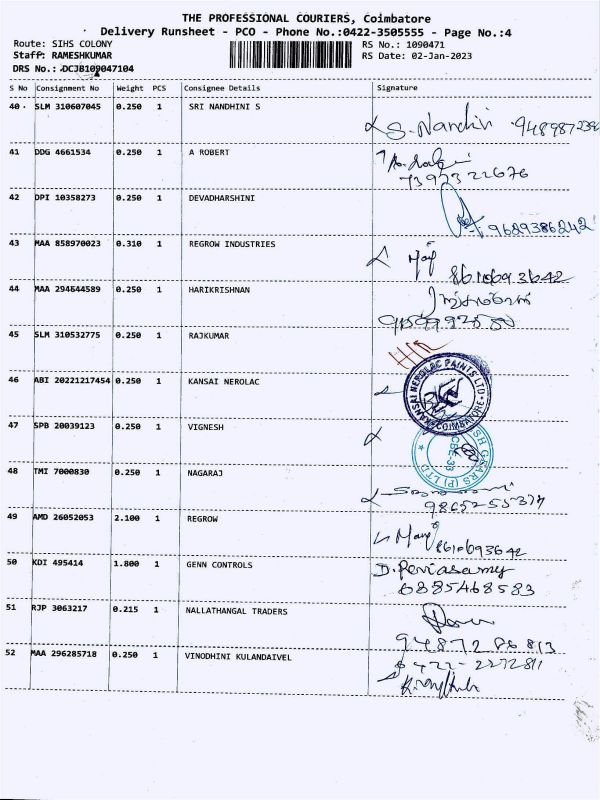 THE PROFESSIONAL COURIERS, Coimbatore
Delivery Runsheet - PCO - Phone No.:0422-3505555 - Page No.:4
Route: SIHS COLONY RS No.: 1090471
Staff: RAMESHKUMAR RS Date: 02-Jan-2023
DRS No.: DCJB109047104
S No Consignment No Weight PCS Consignee Details Signature
40 SLM 310607045 0.250 1 SRI NANDHINI S
S. Nandhini
41 DDG 4661534 0.250 1 A ROBERT
7397322676
42 DPI 10358273 0.250 1 DEVADHARSHINI
9629386242
43 MAA 858970023 0.310 1 REGROW INDUSTRIES
8610693642
44 MAA 294644589 0.250 1 HARIKRISHNAN
45 SLM 310532775 0.250 1 RAJKUMAR
46 ABI 20221217454 0.250 1 KANSAI NEROLAC
KANSAI NEROLAC PAINTS LTD
COIMBATORE
47 SPB 20039123 0.250 1 VIGNESH
GEARS (P) LTD
CBE-33
48 TMI 7000830 0.250 1 NAGARAJ
49 AMD 26052053 2.100 1 REGROW
8610693642
50 KDI 495414 1.800 1 GENN CONTROLS
D. Periasamy
6885468583
51 RJP 3063217 0.215 1 NALLATHANGAL TRADERS
52 MAA 296285718 0.250 1 VINODHINI KULANDAIVEL